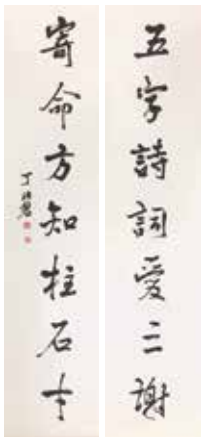 五字詩詞愛二謝
寄命方知柱石才